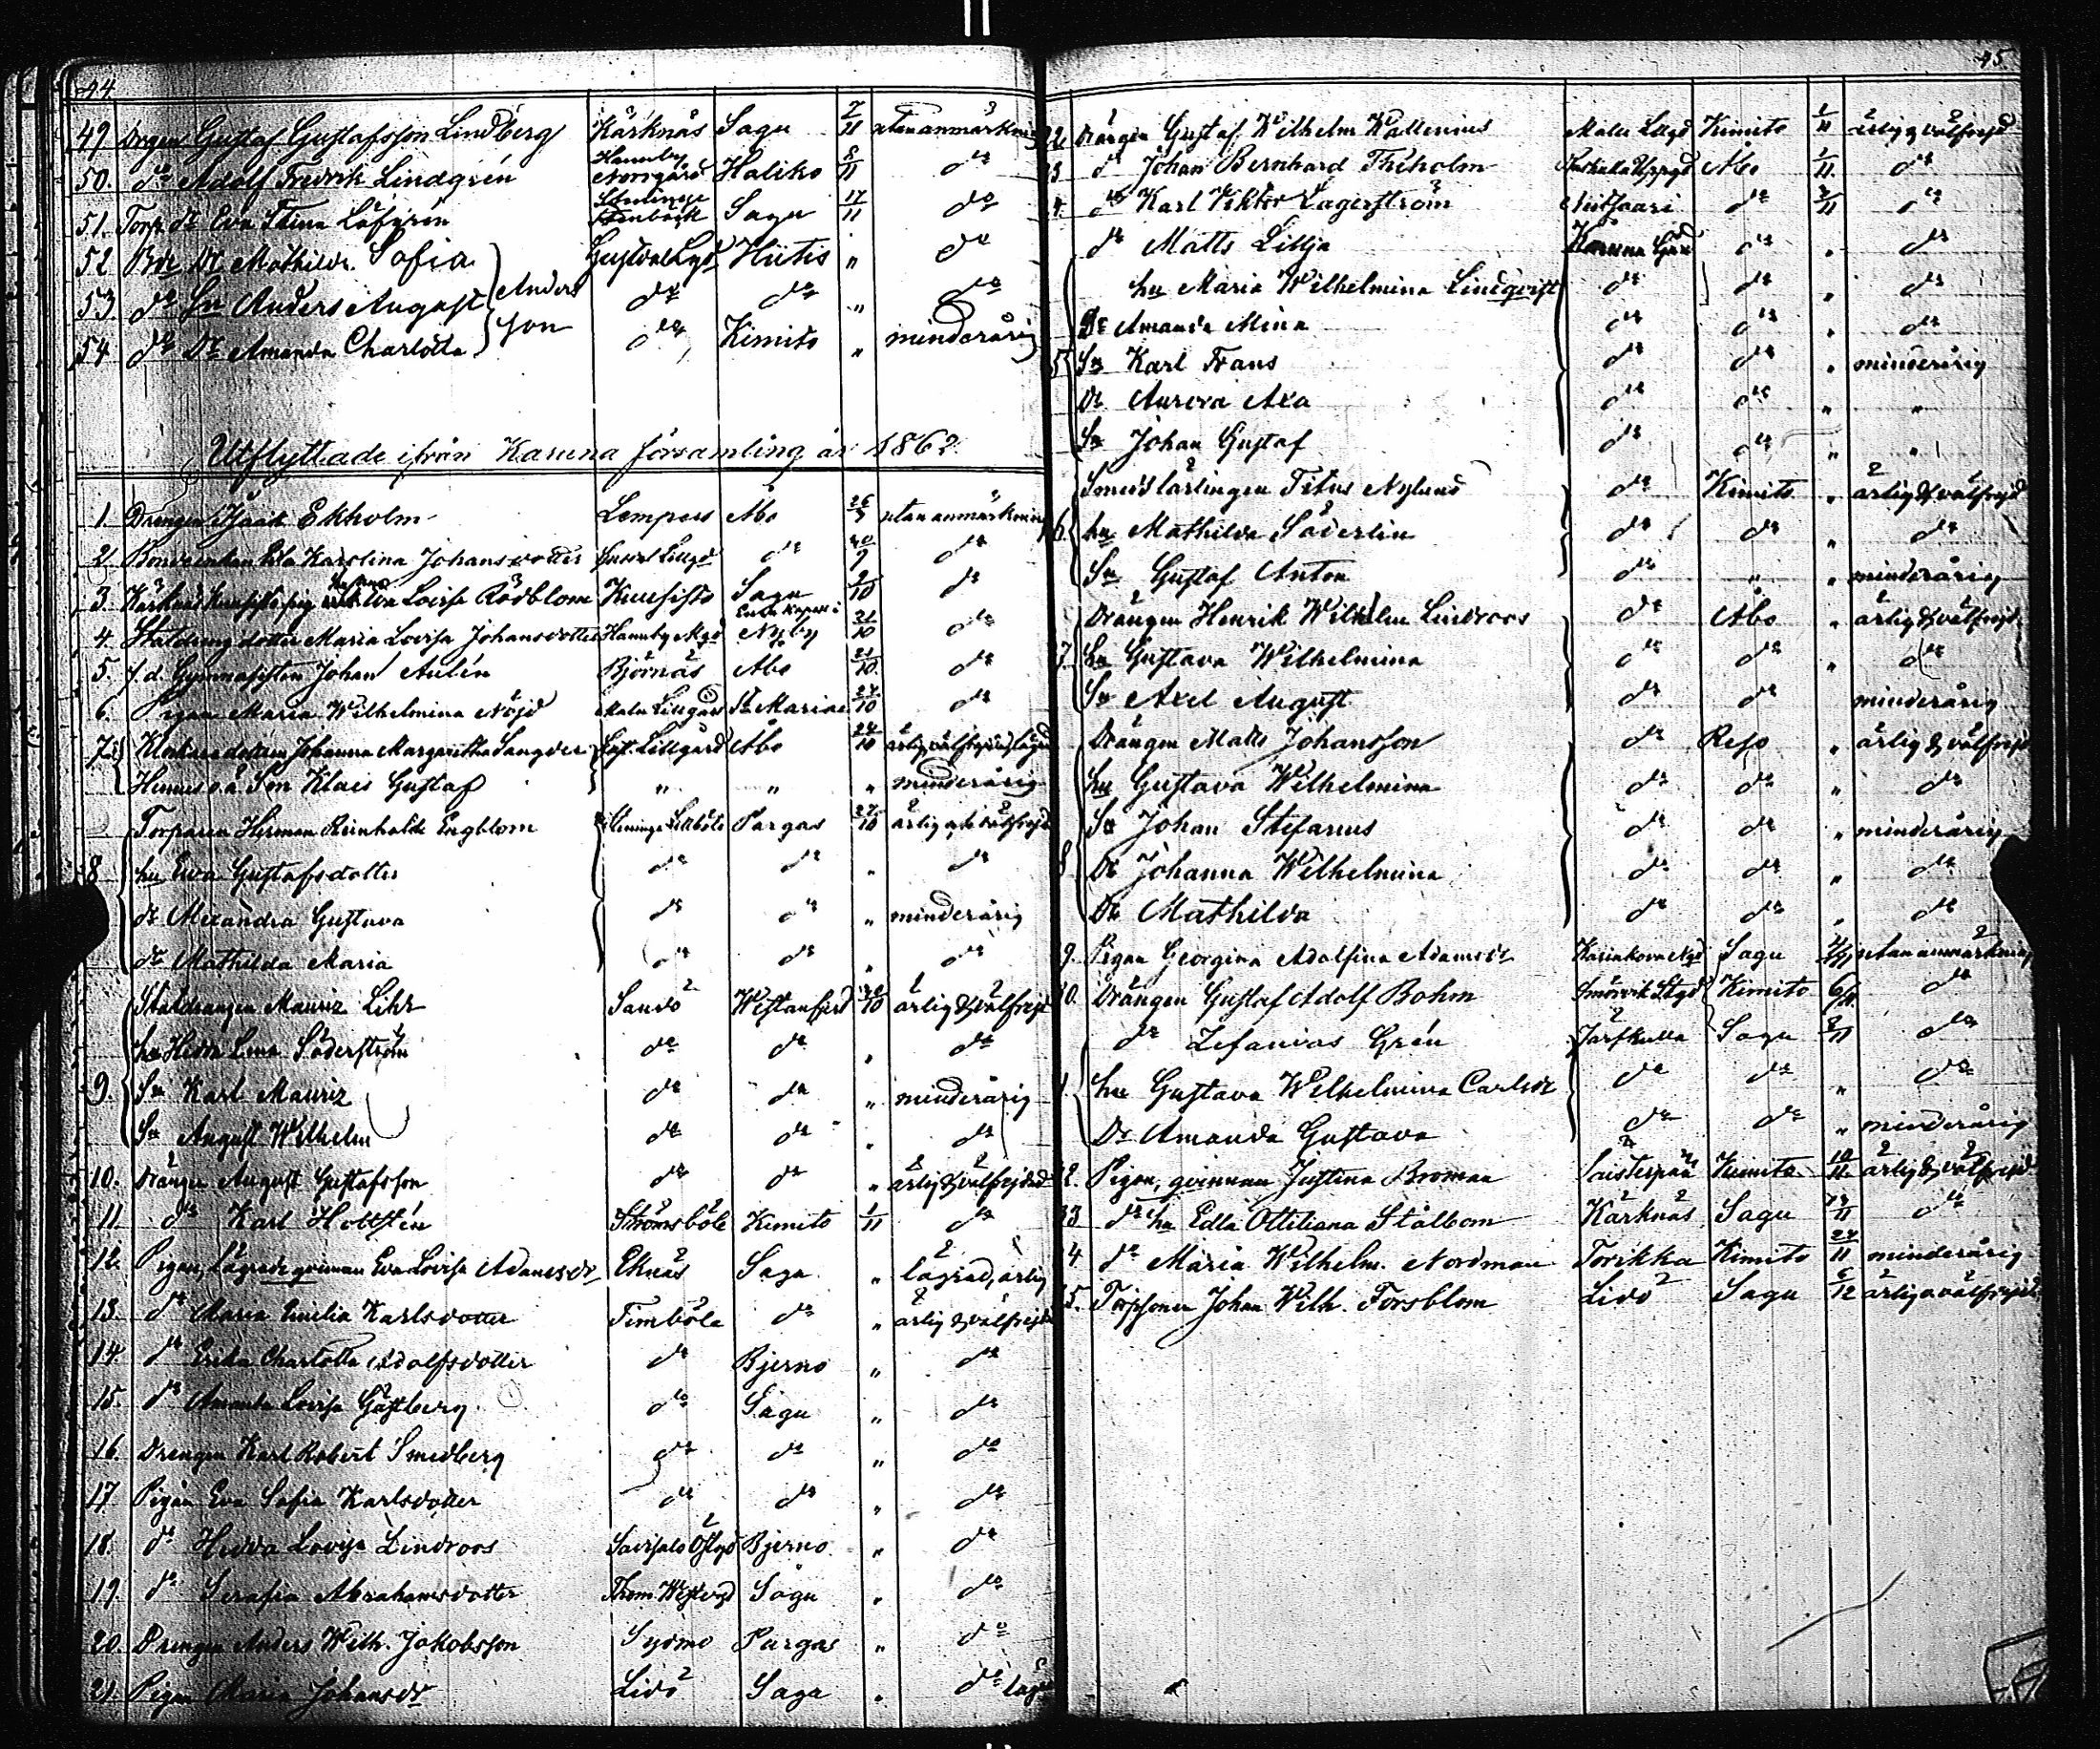 44
49 Drgen Gustaf Gustafsson Lindberg Kärknäs Sagu 7/11 utan anmärkn
50. do Adolf Fredrik Lindgrén Hannby Norrgård Haliko 8/11 do
51. Torp. dr Eva Stina Löfgrén Steninge Sagu 17/11 do
52 Bde Dr Mathilda Sofia Hiitis " do
53. do Sn Anders August Anders do do " do
54 do Dr Amanda Charlotta son do Kimito " minderårig
Utflyttade ifrån Karuna församling år 1862
1. Drengen Isaak Ekholm Lempers Åbo utan anmärkning
2 Karolina Johansdotter do do
3. Lovisa Rödblom Kuusisto Sagu 2/10 do
4. Statdreng dotter Maria Lovisa Johansdotter Hannby Nyby 21/10 do
5. f.d. Gymnasisten Johan Aulén Björnäs Åbo 21/10 do
6. Pigan Maria Wilhelmina Nöjd Malu Lillgård St Mariae 24/10 do
7. Johanna Margaretha Lillgård Åbo 24/10
Hennes o.ä. Son Klais Gustaf " " " minderårig
8 Torparen Herman Reinhold Engblom Pargas 27/10
hu Eva Gustafsdotter do do " do
dr Alexandra Gustava do do " minderårig
dr Mathilda Maria do do " do
9. Statdrängen Mauriz Lihr Sandö Westanfjerd ärlig & välfrejd
hu Hedda Lena Söderström do do " do
Sn Karl Mauriz do do " minderårig
Sn August Wilhelm do do " do
10. Drängen August Gustafsson do do " ärlig & välfrejdad
11 do Karl Hollstén Strömsböle Kimito 1/11 do
12. Pigan, Lägrade qvinnan Eva Lovisa Adamsdr Eknäs Sagu " lägrad, ärlig
13. do Maria Emilia Karlsdotter Timböle do " ärlig & välfrejd
14. do Erika Charlotta Adolfsdotter do Bjerno " do
15. do Amanda Lovisa Gästberg do Sagu " do
16. Drengen Karl Robert Smedberg do do " do
17 Pigan Eva Sofia Karlsdotter do do " do
18. do Hedda Lovisa Lindroos Bjerno " do
19. do Serafia Abrahamsdotter Sagu " do
20. Drengen Anders Wilh. Jakobsson Sydmo Pargas " do
21. Pigan Maria Johansdr Lidö Sagu " do
45
22 Drängen Gustaf Wilhelm Wallenius Malu Lillgd Kimito 1/11 ärlig & välfrejd
23 do Johan Bernhard Thiholm Åbo 1/11. do
4. do Karl Viktor Lagerström Niitsaari do 2/11 do
5 do Matts Lillja Karuna Gård do " do
hu Maria Wilhelmina Lindqvist do do " do
Dr Amanda Mina do do " do
Sn Karl Frans do do " minderårig
Dr Aurora Axa do do " "
Sn Johan Gustaf do do " "
6 Smedslärlingen Titus Nylund do Kimito " ärlig & välfrejd
hu Mathilda Söderlin do do " do
Sn Gustaf Anton do " " minderårig
7 Drängen Henrik Wilhelm Lindroos do Åbo " ärlig & välfrejd
hu Gustava Wilhelmina do do " do
Sn Axel August do do minderårig
8 Drängen Matts Johansson do Reso " ärlig & välfrejd
hu Gustava Wilhelmina do do " do
Sn Johan Stefanus do do " minderårig
Dr Johanna Wilhelmina do do " do
Dr Mathilda do do " do
9 Pigan Georgina Adolfina Adamsdr Sagu utan anmärkning
30. Drängen Gustaf Adolf Bohm Smörvik Kimito 6/11 do
1. do Zefanias Grén Järfkulla Sagu do
hu Gustava Wilhelmina Carlsdr do do " do
Dr Amanda Gustava do do " minderårig
32. Pigan, qvinnan Justina Broman Kimito ärlig & välfrejd
33 do hu Edla Ottiliana Stålbom Kärknäs Sagu do
34 do Maria Wilhelm. Nordman Torikka Kimito 24/11 minderårig
35. Torpsonen Johan Wilh. Forsblom Lidö Sagu 5/12 ärlig & välfrejd